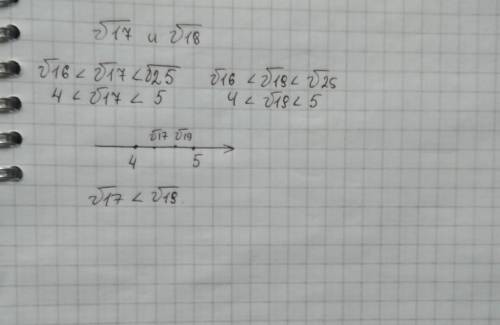 √17 и √18
√16 < √17 < √25 √16 < √19 < √25
4 < √17 < 5 4 < √19 < 5
√17 √19
4 5
√17 < √19